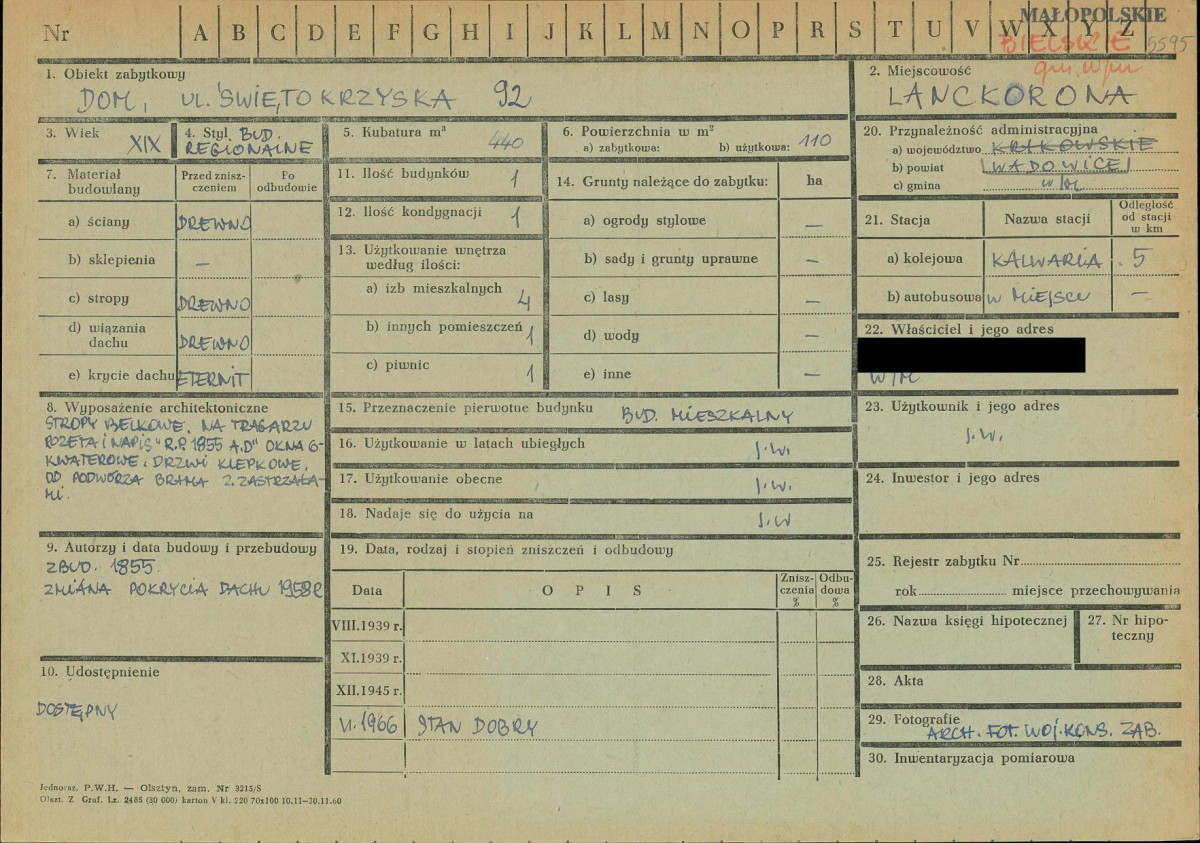 Nr A B C D E F G H I J K L M N O P R S T U V W X Y Z
MAŁOPOLSKIE
BIELSKIE 5595
gm. w/m
1. Obiekt zabytkowy
DOM, UL. ŚWIĘTOKRZYSKA 92
2. Miejscowość
LANCKORONA
3. Wiek
XIX
4. Styl BUD.
REGIONALNE
5. Kubatura m³
440
6. Powierzchnia w m²
a) zabytkowa: b) użytkowa: 110
7. Materiał budowlany
Przed zniszczeniem
Po odbudowie
a) ściany DREWNO
b) sklepienia —
c) stropy DREWNO
d) wiązania dachu DREWNO
e) krycie dachu ETERNIT
8. Wyposażenie architektoniczne
STROPY BELKOWE. NA TRAGARZU
ROZETA I NAPIS "R.P. 1855 A.D" OKNA 6-
KWATEROWE. DRZWI KLEPKOWE.
OD PODWÓRZA BRAMA Z ZASTRZAŁA-
MI.
9. Autorzy i data budowy i przebudowy
ZBUD. 1855.
ZMIANA POKRYCIA DACHU 1958 R
10. Udostępnienie
DOSTĘPNY
11. Ilość budynków 1
12. Ilość kondygnacji 1
13. Użytkowanie wnętrza
według ilości:
a) izb mieszkalnych 4
b) innych pomieszczeń 1
c) piwnic 1
14. Grunty należące do zabytku: ha
a) ogrody stylowe —
b) sady i grunty uprawne —
c) lasy —
d) wody —
e) inne —
15. Przeznaczenie pierwotne budynku BUD. MIESZKALNY
16. Użytkowanie w latach ubiegłych J.W.
17. Użytkowanie obecne J.W.
18. Nadaje się do użycia na J.W
19. Data, rodzaj i stopień zniszczeń i odbudowy
Data OPIS Zniszczenia % Odbudowa %
VIII.1939 r.
XI.1939 r.
XII.1945 r.
VI.1966 STAN DOBRY
20. Przynależność administracyjna
a) województwo KRAKOWSKIE
b) powiat WADOWICE
c) gmina w/m
21. Stacja Nazwa stacji Odległość od stacji w km
a) kolejowa KALWARIA 5
b) autobusowa W MIEJSCU —
22. Właściciel i jego adres
W/M
23. Użytkownik i jego adres
J.W.
24. Inwestor i jego adres
25. Rejestr zabytku Nr
rok miejsce przechowywania
26. Nazwa księgi hipotecznej
27. Nr hipo-
teczny
28. Akta
29. Fotografie
ARCH. FOT. WOJ. KONS. ZAB.
30. Inwentaryzacja pomiarowa
Jednoraz. P.W.H. — Olsztyn, zam. Nr 3215/S
Olszt. Z Graf. Lz. 2485 (30 000) karton V kl. 220 70x100 10.11—30.11.60